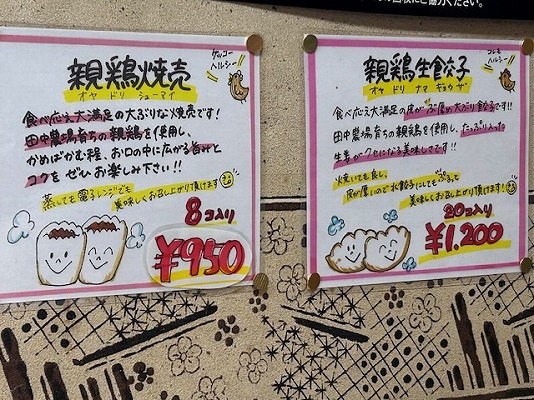 の回収にご協力ください。
ケッコー
ヘルシー!!
親鶏焼売
オヤ ドリ シューマイ
食べ応え大満足の大ぶりな焼売です!
田中農場育ちの親鶏を使用し、
かめばかむ程、お口の中に広がる旨みと
コクをぜひお楽しみ下さい!!
蒸しても電子レンジでも
美味しくお召し上がり頂けます
8コ入り
¥950
コレモ
ヘルシー!!
親鶏生餃子
オヤ ドリ ナマ ギョウザ
食べ応え大満足の皮がぶ厚め大ぶり餃子です!!
田中農場育ちの親鶏を使用し、たっぷり入った
生姜がクセになる美味しさです!!
焼いても良し、
皮が厚いので水餃子にしてもぷるっと
美味しくお召し上がり頂けます!
20コ入り
¥1,200